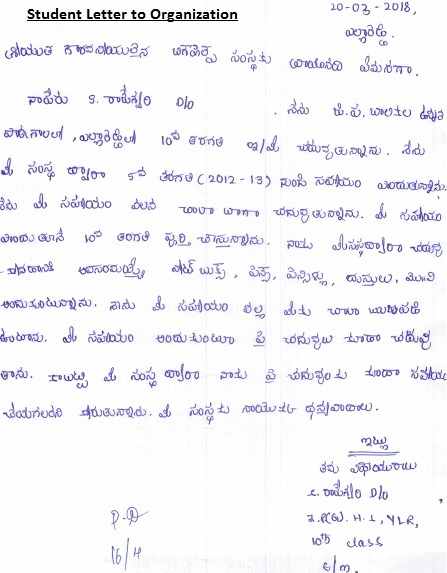 Student Letter to Organization
20-03-2018,
ఎల్లారెడ్డి.
శ్రీయుత గౌరవనీయులైన సంస్థకు వ్రాయునది ఏమనగా.
నాపేరు S. రాజేశ్వరి D/O . నేను జి.ప. బాలికల ఉన్నత
పాఠశాలలో, ఎల్లారెడ్డిలో 10వ తరగతి ఇ/మీ చదువుతున్నాను. నేను
మీ సంస్థ ద్వారా 5వ తరగతి (2012-13) నుండి సహాయం పొందుతున్నాను.
నేను మీ సహాయం వలన చాలా బాగా చదువుతున్నాను. మీ సహాయం
పొందుతూనే 10వ తరగతి పూర్తి చేస్తున్నాను. నాకు మీ సంస్థ ద్వారా చదువు
-కోవడానికి అవసరమయ్యే నోట్ బుక్స్, పెన్స్, పెన్సిళ్లు, దుస్తులు, మనీ
అందుకుంటున్నాను. నేను మీ సహాయం వల్ల మీకు చాలా ఋణపడి
ఉంటాను. మీ సహాయం అందుకుంటూ పై చదువులు కూడా చదువు
తాను. కాబట్టి మీ సంస్థ ద్వారా నాకు పై చదువులకు కూడా సహాయం
చేయగలరని కోరుతున్నాను. మీ సంస్థకు నాయొక్క ధన్యవాదాలు.
ఇట్లు
తమ విధేయురాలు
S. రాజేశ్వరి D/O
Z.P(G).H.S, YLR,
10th class
E/m.
16/4